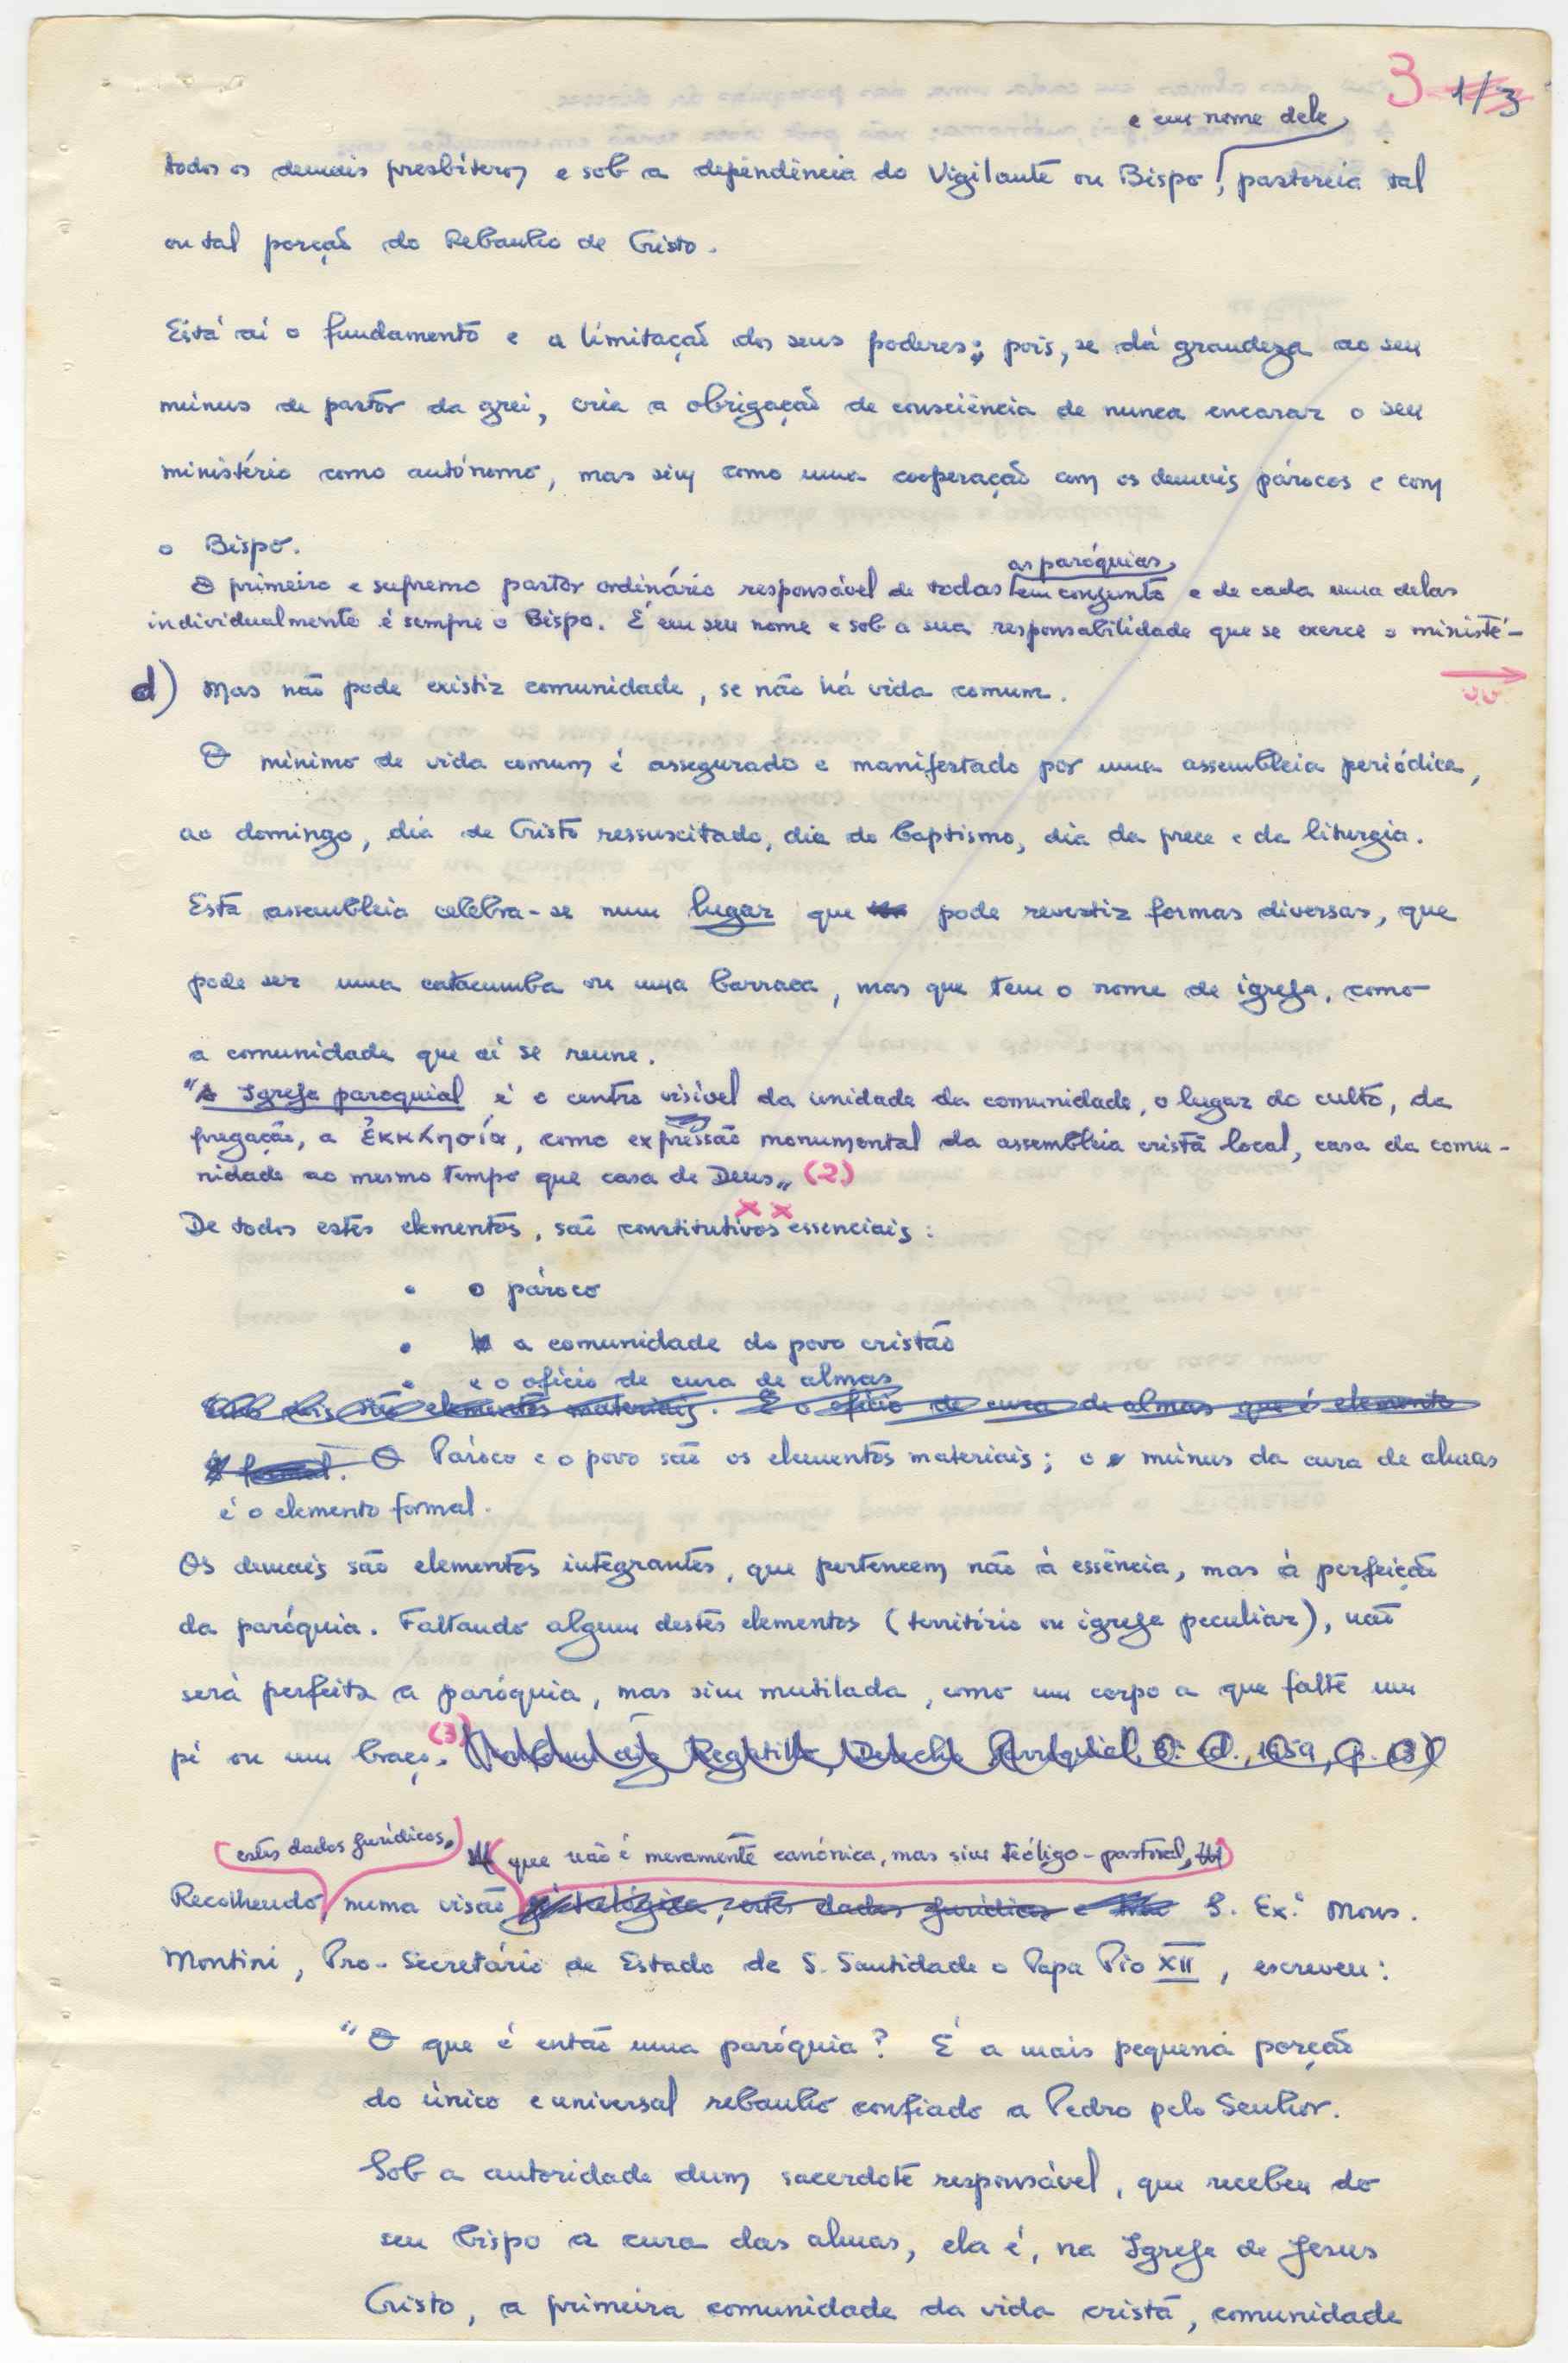 3 1/3
e em nome dele,
todos os demais presbíteros e sob a dependência do Vigilante ou Bispo, pastoreia tal
ou tal porção do Rebanho de Cristo.
Está aí o fundamento e a limitação dos seus poderes; pois, se dá grandeza ao seu
múnus de pastor da grei, cria a obrigação de consciência de nunca encarar o seu
ministério como autónomo, mas sim como uma cooperação com os demais párocos e com
o Bispo.
as paróquias,
O primeiro e supremo pastor ordinário responsável de todas em conjunto e de cada uma delas
individualmente é sempre o Bispo. É em seu nome e sob a sua responsabilidade que se exerce o ministé-
d) Mas não pode existir comunidade, se não há vida comum.
O mínimo de vida comum é assegurado e manifestado por uma assembleia periódica,
ao domingo, dia de Cristo ressuscitado, dia do Baptismo, dia da prece e da liturgia.
Esta assembleia celebra-se num lugar que pode revestir formas diversas, que
pode ser uma catacumba ou uma barraca, mas que tem o nome de igreja, como
a comunidade que aí se reune.
"A Igreja paroquial é o centro visível da unidade da comunidade, o lugar do culto, da
pregação, a ἐκκλησία, como expressão monumental da assembleia cristã local, casa da comu-
nidade ao mesmo tempo que casa de Deus" (2)
x x
De todos estes elementos, são constitutivos essenciais:
• o pároco
• a comunidade do povo cristão
• e o ofício de cura de almas
são elementos materiais. E o ofício de cura de almas que é elemento
formal. O Pároco e o povo são os elementos materiais; o múnus da cura de almas
é o elemento formal.
Os demais são elementos integrantes, que pertencem não à essência, mas à perfeição
da paróquia. Faltando algum destes elementos (território ou igreja peculiar), não
será perfeita a paróquia, mas sim mutilada, como um corpo a que falte um
pé ou um braço. (3) Regatillo, Derecho Parroquial, ed., 1959, p.
estes dados jurídicos, que não é meramente canónica, mas sim teóligo-pastoral,
Recolhendo, numa visão estes dados jurídicos e S. Ex.ª Mons.
Montini, Pro-Secretário de Estado de S. Santidade o Papa Pio XII, escreveu:
"O que é então uma paróquia? É a mais pequena porção
do único e universal rebanho confiado a Pedro pelo Senhor.
Sob a autoridade dum sacerdote responsável, que recebeu do
seu bispo a cura das almas, ela é, na Igreja de Jesus
Cristo, a primeira comunidade da vida cristã, comunidade